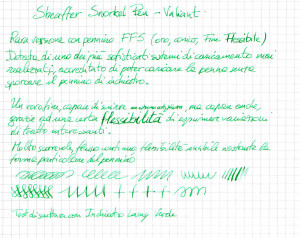 Sheaffer Snorkel Pen - Valiant.
Rara versione con pennino FF5 (oro, conico, Fine Flessibile)
Dotata di uno dei più sofisticati sistemi di caricamento mai
realizzati, accreditato di poter caricare la penna senza
sporcare il pennino di inchiostro.
Un carofine, capace di scrivere, ma capace anche,
grazie ad una certa flessibilità di esprimere variazioni
di tratto interessanti.
Molto scorrevole, flusso continuo flessibilità usabile nonostante la
forma particolare del pennino
Test di scrittura con Inchiostro Lamy Verde